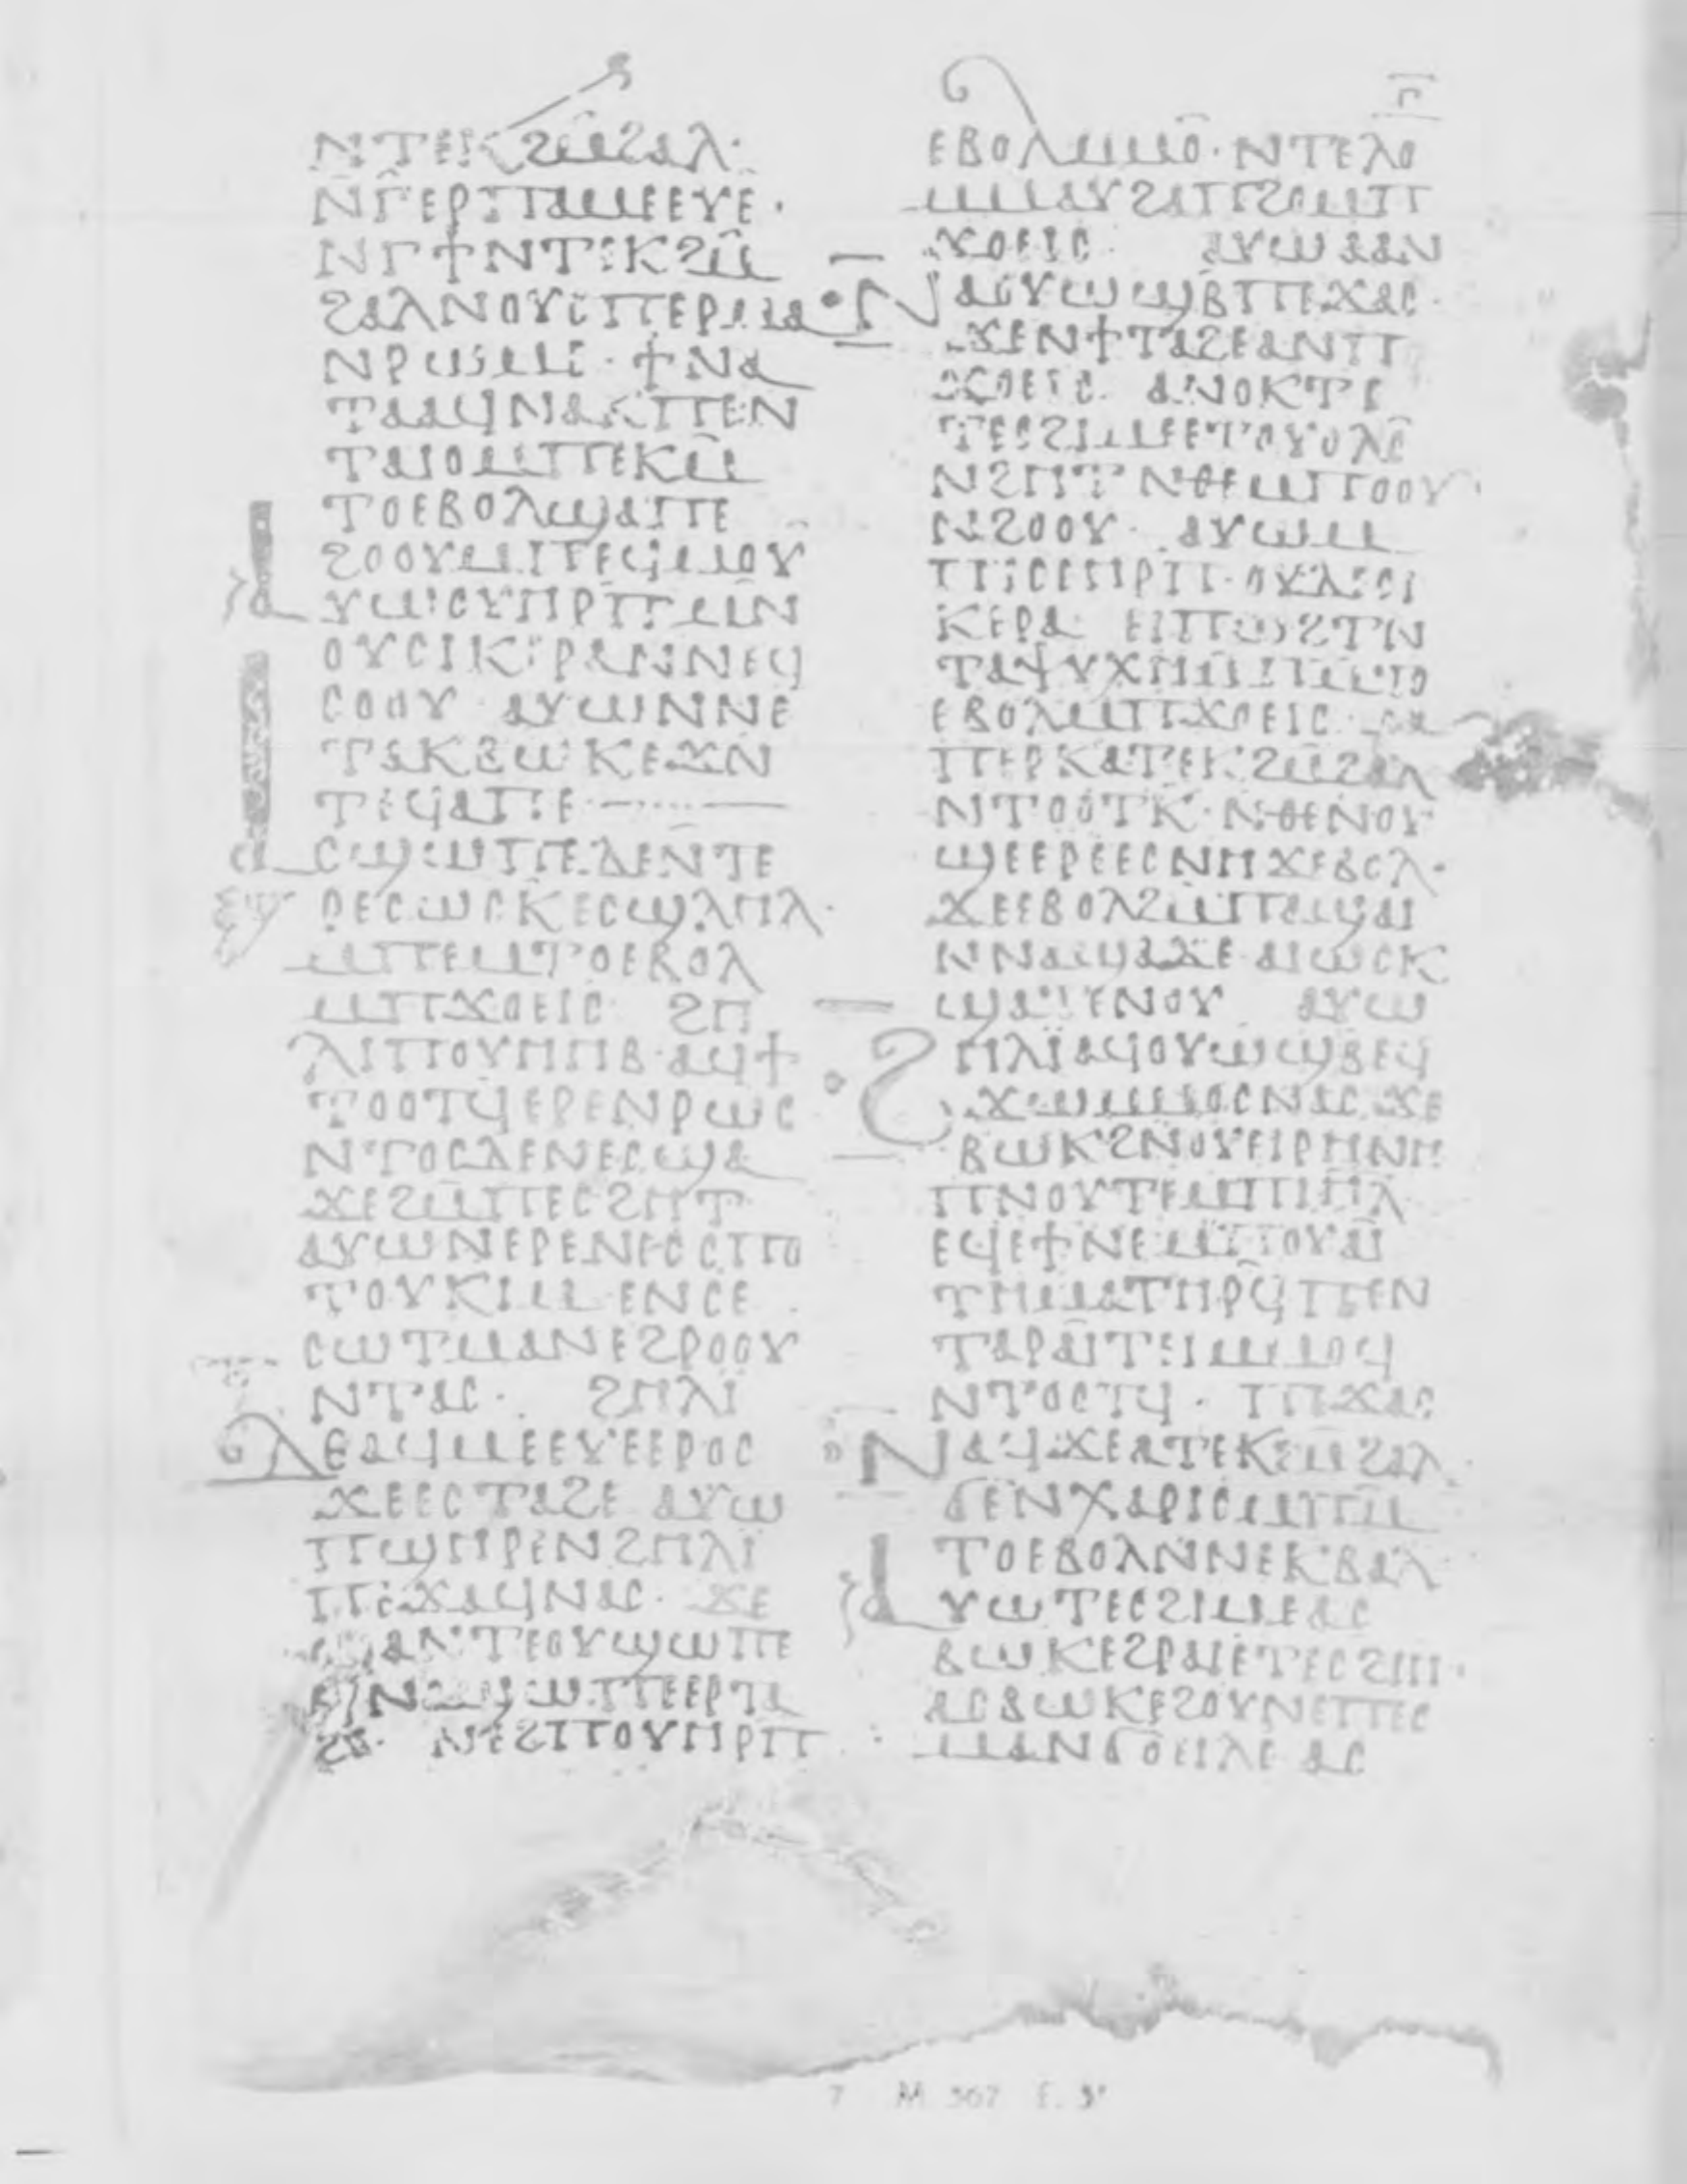 ⲅ̅
ⲛⲧⲉⲕϩⲙ̅ϩⲁⲗ·
ⲛ̅ⲅ̅ⲉⲣⲡⲁⲙⲉⲉⲩⲉ·
ⲛⲅϯⲛⲧⲉⲕϩⲙ̅
ϩⲁⲗⲛⲟⲩⲥⲡⲉⲣⲙⲁ
ⲛⲣⲱⲙⲉ· ϯⲛⲁ
ⲧⲁⲁϥⲛⲁⲕⲡⲉⲛ
ⲧⲁⲓⲟⲙⲡⲉⲕⲙ̅
ⲧⲟⲉⲃⲟⲗϣⲁⲡⲉ
ϩⲟⲟⲩⲙⲡⲉϥⲙⲟⲩ̅
ⲁⲩⲱⲟⲩⲏⲣⲡ̅ⲙⲛ̅
ⲟⲩⲥⲓⲕⲉⲣⲁⲛⲛⲉϥ
ⲥⲟⲟⲩ ⲁⲩⲱⲛⲛⲉ
ⲧⲁⲕⲃⲱⲕⲉϫⲛ
ⲧⲉϥⲁⲡⲉ
ⲁⲥϣⲱⲡⲉⲇⲉⲛ̅ⲧⲉ
ⲣⲉⲥⲱⲥⲕⲉⲥϣⲗⲏⲗ·
ⲙⲡⲉⲙⲧⲟⲉⲃⲟⲗ
ⲙⲡϫⲟⲉⲓⲥ ϩⲏ
ⲗⲓⲡⲟⲩⲏⲏⲃ·ⲁϥϯ
ⲧⲟⲟⲧϥⲉⲣⲉⲛⲣⲱⲥ
ⲛⲧⲟⲥⲇⲉⲛⲉⲥϣⲁ
ϫⲉϩⲙ̅ⲡⲉⲥϩⲏⲧ·
ⲁⲩⲱⲛⲉⲣⲉⲛⲉⲥⲥⲡⲟ
ⲧⲟⲩⲕⲓⲙ ⲉⲛⲥⲉ
ⲥⲱⲧⲙⲁⲛⲉϩⲣⲟⲟⲩ
ⲛⲧⲁⲥ· ϩⲏⲗⲓ̈
ⲇⲉⲁϥⲙⲉⲉⲩⲉⲉⲣⲟⲥ
ϫⲉⲉⲥⲧⲁϩⲉ ⲁⲩⲱ
ⲡϣⲏⲣⲉⲛϩⲏⲗⲓ̈
ⲡⲉϫⲁϥⲛⲁⲥ· ϫⲉ
ϣⲁⲛⲧⲉⲟⲩϣⲱⲡⲉ
ⲛⲉϩⲡⲟⲩⲏⲣⲡ
ⲉⲃⲟⲗⲙⲙⲟ̅·ⲛⲧⲉⲗⲟ
ⲙⲙⲁⲩϩⲁⲡϩⲟⲙⲡ
ϫⲟⲉⲓⲥ· ⲁⲩⲱⲁⲁⲛ
ⲛⲁⲟⲩⲱϣⲃⲡⲉϫⲁⲥ·
ϫⲉⲛϯⲧⲁϩⲉⲁⲛⲡ
ϫⲟⲉⲓⲥ· ⲁⲛⲟⲕⲧⲉ
ⲧⲉⲥϩⲓⲙⲉⲉⲧⲟⲩⲟⲗⲥ̅
ⲛϩⲏⲧ ⲛⲑⲉⲙⲡⲟⲟⲩ·
ⲛϩⲟⲟⲩ· ⲁⲩⲱⲙ
ⲡⲓⲥⲉⲏⲣⲡ·ⲟⲩⲇⲉⲥⲓ
ⲕⲉⲣⲁ· ⲉⲓⲡⲱϩⲧⲛ
ⲧⲁⲯⲩⲭⲏⲙⲡⲉⲙⲧⲟ
ⲉⲃⲟⲗⲙⲡϫⲟⲉⲓⲥ·ⲙ
ⲡⲉⲣⲕⲁⲧⲉⲕϩⲙ̅ϩⲁⲗ
ⲛⲧⲟⲟⲧⲕ·ⲛⲑⲉⲛⲟⲩ
ϣⲉⲉⲣⲉⲉⲥⲛⲏϫⲉⲃⲟⲗ·
ϫⲉⲉⲃⲟⲗϩⲙ̅ⲡⲁϣⲁⲓ
ⲛⲛⲁϣⲁϫⲉ·ⲁⲓⲱⲥⲕ
ϣⲁⲧⲉⲛⲟⲩ ⲁⲩⲱ
ϩⲏⲗⲓ̈ⲁϥⲟⲩⲱϣⲃⲉϥ
ϫⲱⲙⲙⲟⲥⲛⲁⲥ·ϫⲉ
ⲃⲱⲕϩⲛⲟⲩⲉⲓⲣⲏⲛⲏ
ⲡⲛⲟⲩⲧⲉⲙⲡⲓⲏ̅ⲗ
ⲉϥⲉϯⲛⲉⲙⲡⲟⲩⲁⲓ
ⲧⲏⲙⲁⲧⲏⲣϥ̅ⲡⲉⲛ
ⲧⲁⲣⲁⲓⲧⲉⲓⲙⲙⲟϥ
ⲛⲧⲟⲟⲧϥ· ⲡⲉϫⲁⲥ
ⲛⲁϥ·ϫⲉⲁⲧⲉⲕϩⲙ̅ϩⲁⲗ
ϭⲉⲛⲭⲁⲣⲓⲥⲙⲡⲙ̅
ⲧⲟⲉⲃⲟⲗⲛⲛⲉⲕⲃⲁⲗ·
ⲁⲩⲱⲧⲉⲥϩⲓⲙⲉⲁⲥ
ⲃⲱⲕⲉϩⲣⲁⲓⲉⲧⲉⲥϩⲓⲏ·
ⲁⲥⲃⲱⲕⲉϩⲟⲩⲛⲉⲡⲉⲥ
ⲙⲁⲛϭⲟⲉⲓⲗⲉ ⲁⲥ
7 M 567 F. 3ʳ